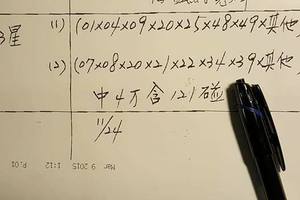 (1) (01×04×09×20×25×48×49×其他
星
(2) (07×08×20×21×22×34×39×其他
中4万含121碰
11/24
Mar 9 2015 1:12 P.01